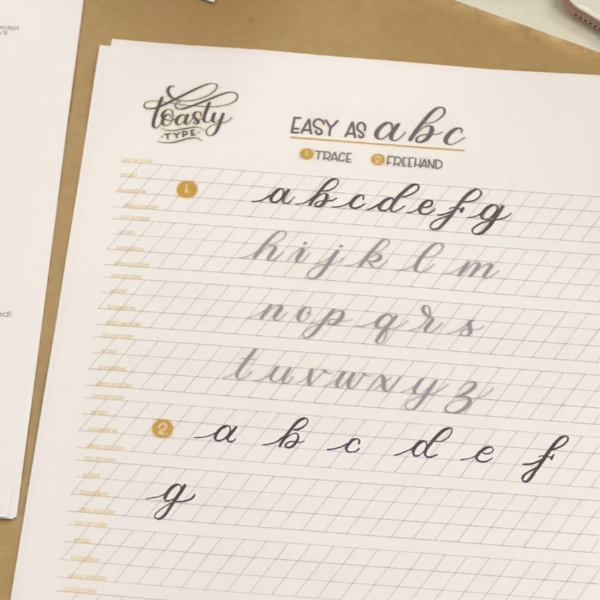 toasty
TYPE
EASY AS abc
1 TRACE 2 FREEHAND
1. a b c d e f g
h i j k l m
n o p q r s
t u v w x y z
2 a b c d e f
g